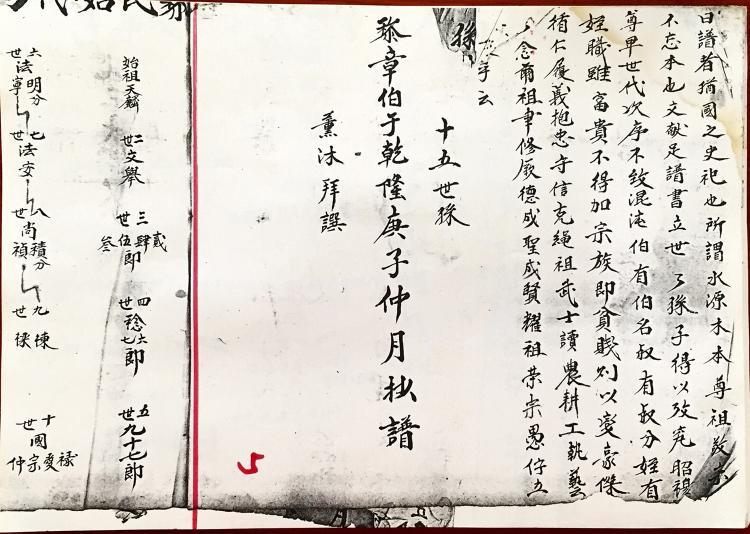 曰譜者猶國之史祀也所謂水源木本尊祖敬宗
不忘本也文献足譜書立世了孫子得以攷究昭穆
尊卑世代次序不致混淹伯有伯名叔有叔分姪有
姪職雖富貴不得加宗族即貧賤则以变豪傑
仁履義抱忠守信克繩祖武士讀農耕工執藝
念爾祖聿修厥德成聖成賢耀祖荣宗愚
孫
字云
十五世孫
章伯于乾隆庚子仲月抄譜
薰沐拜譔
始祖天麟
二世文舉
三世貳肆伍叁郎
四世稔六七郎
五世九十七郎
六世明分法寧
七世法安
八世尚積分禎
九世棟禄
十世國宗愛禄仲
5